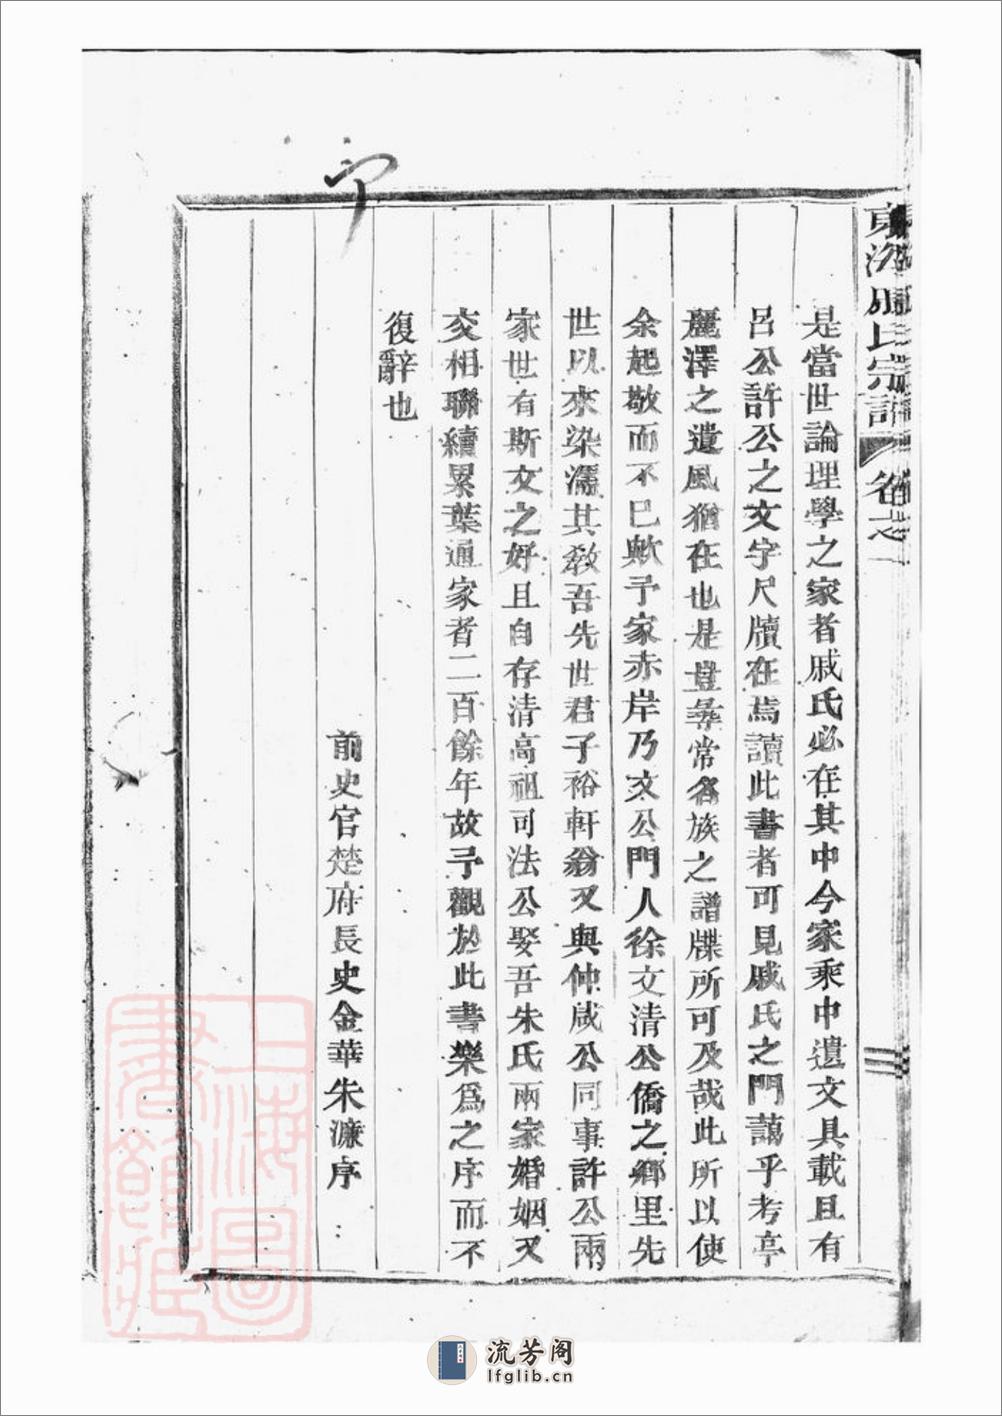 東洛戚氏宗譜
是當世論理學之家者戚氏必在其中今家乘中遺文具載且有
呂公許公之文字尺牘在焉讀此書者可見戚氏之門藹乎考亭
麗澤之遺風猶在也是豈彝常各族之譜牒所可及哉此所以使
余起敬而不已歟予家赤岸乃文公門人徐文清公僑之鄉里先
世以來染濡其教吾先世君子裕軒翁又與仲咸公同事許公兩
家世有斯文之好且自存清高祖司法公娶吾朱氏兩家婚姻又
交相聯續累葉通家者二百餘年故予觀於此書樂為之序而不
復辭也
前史官楚府長史金華朱濂序
上海圖書館藏
流芳阁
lfglib.cn